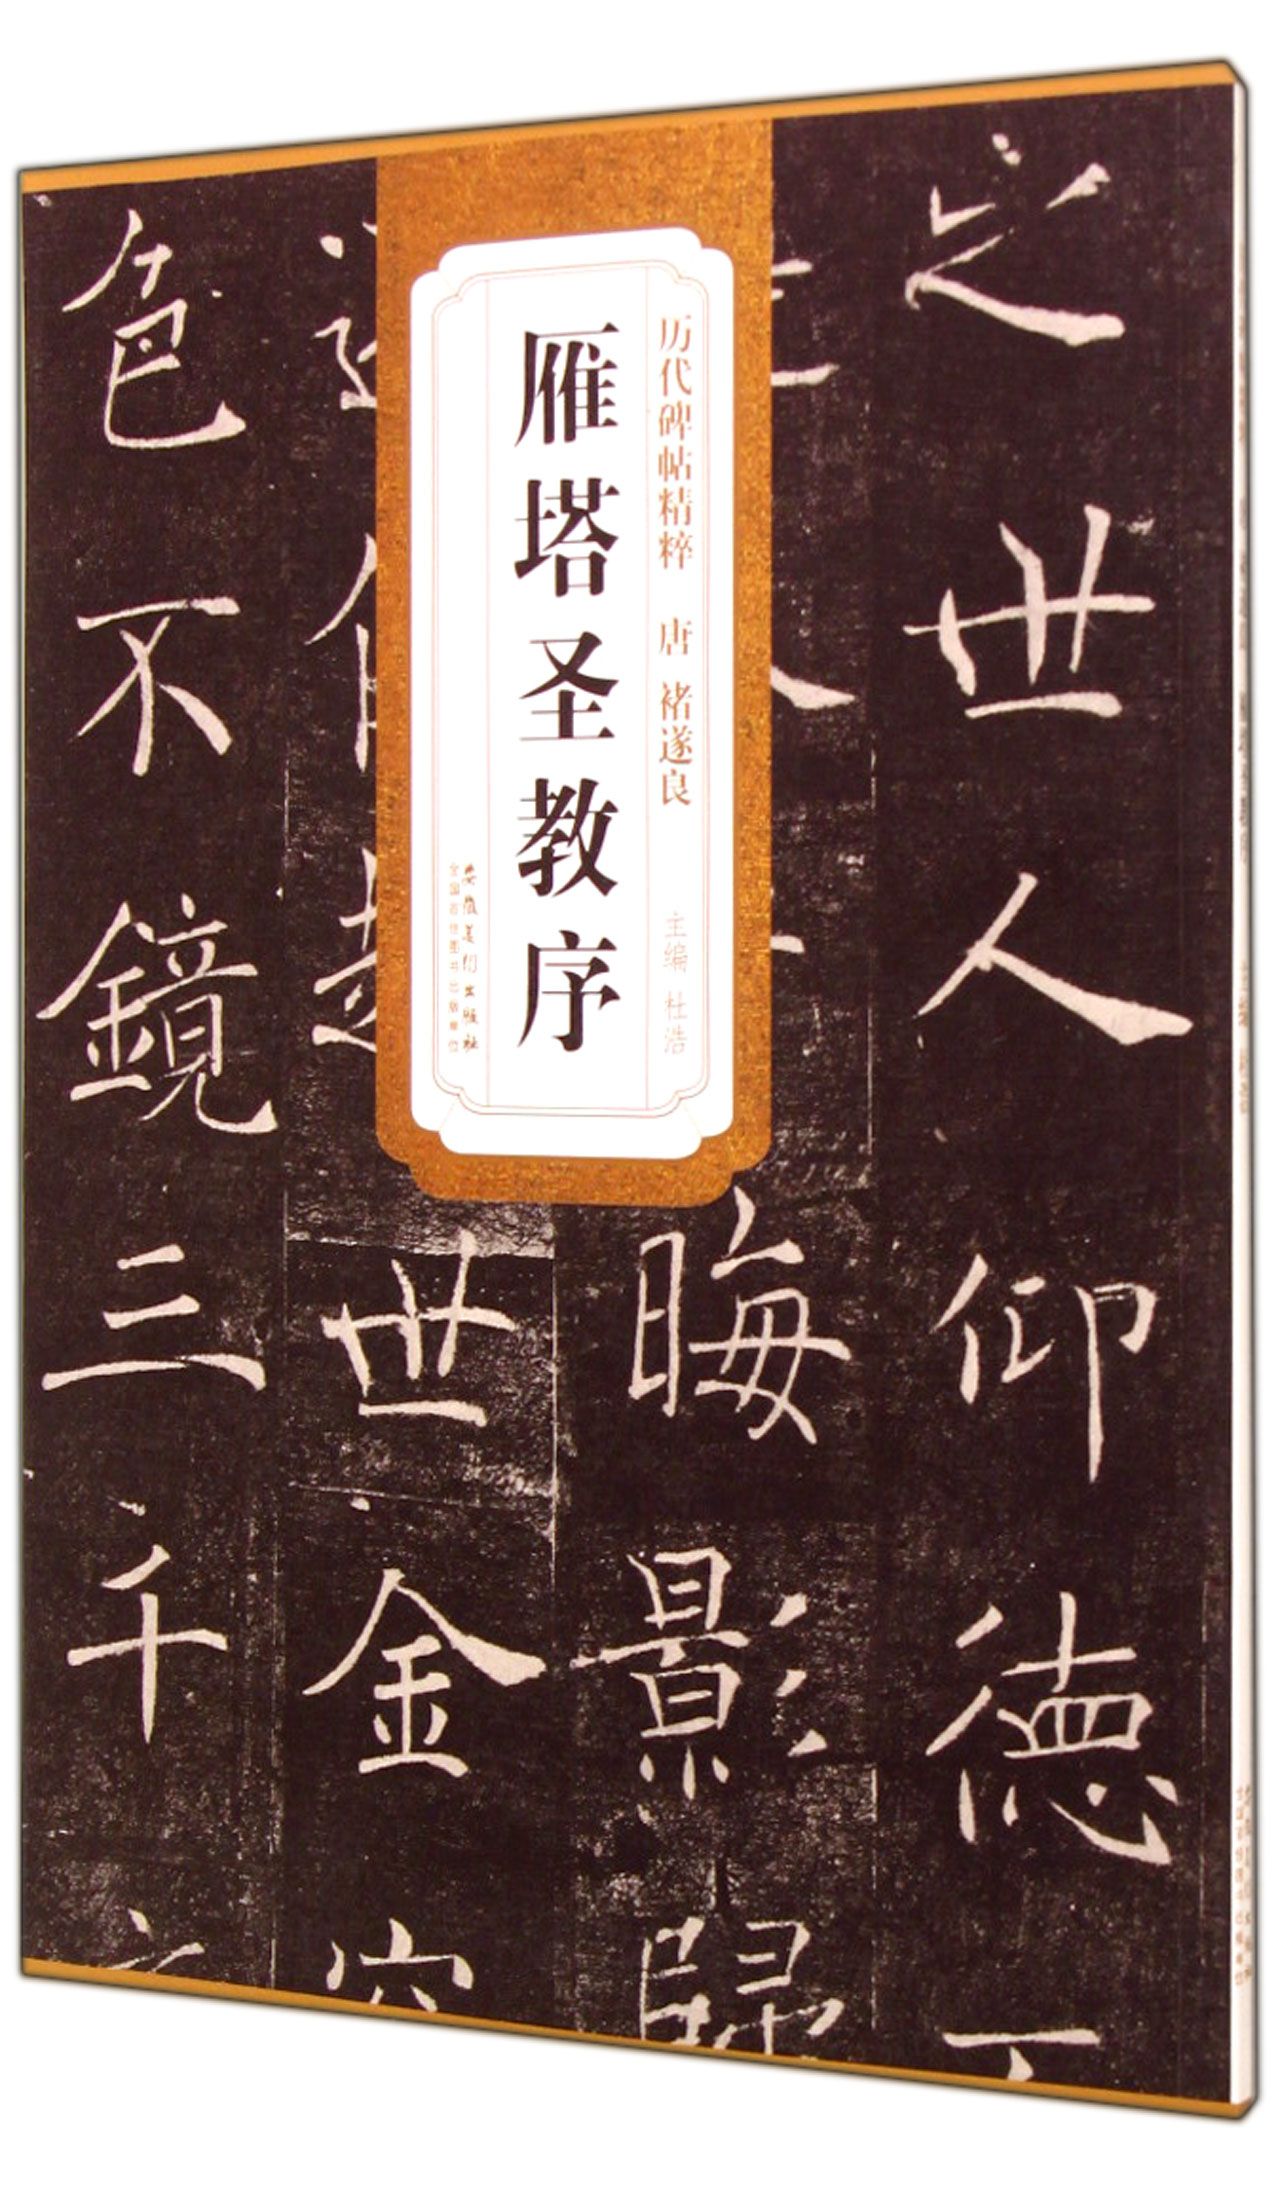 历代碑帖精粹 唐 褚遂良
主编 杜浩
雁塔圣教序
安徽美术出版社
全国百佳图书出版单位
之世人仰德
晦影歸
世金
色不鏡三千